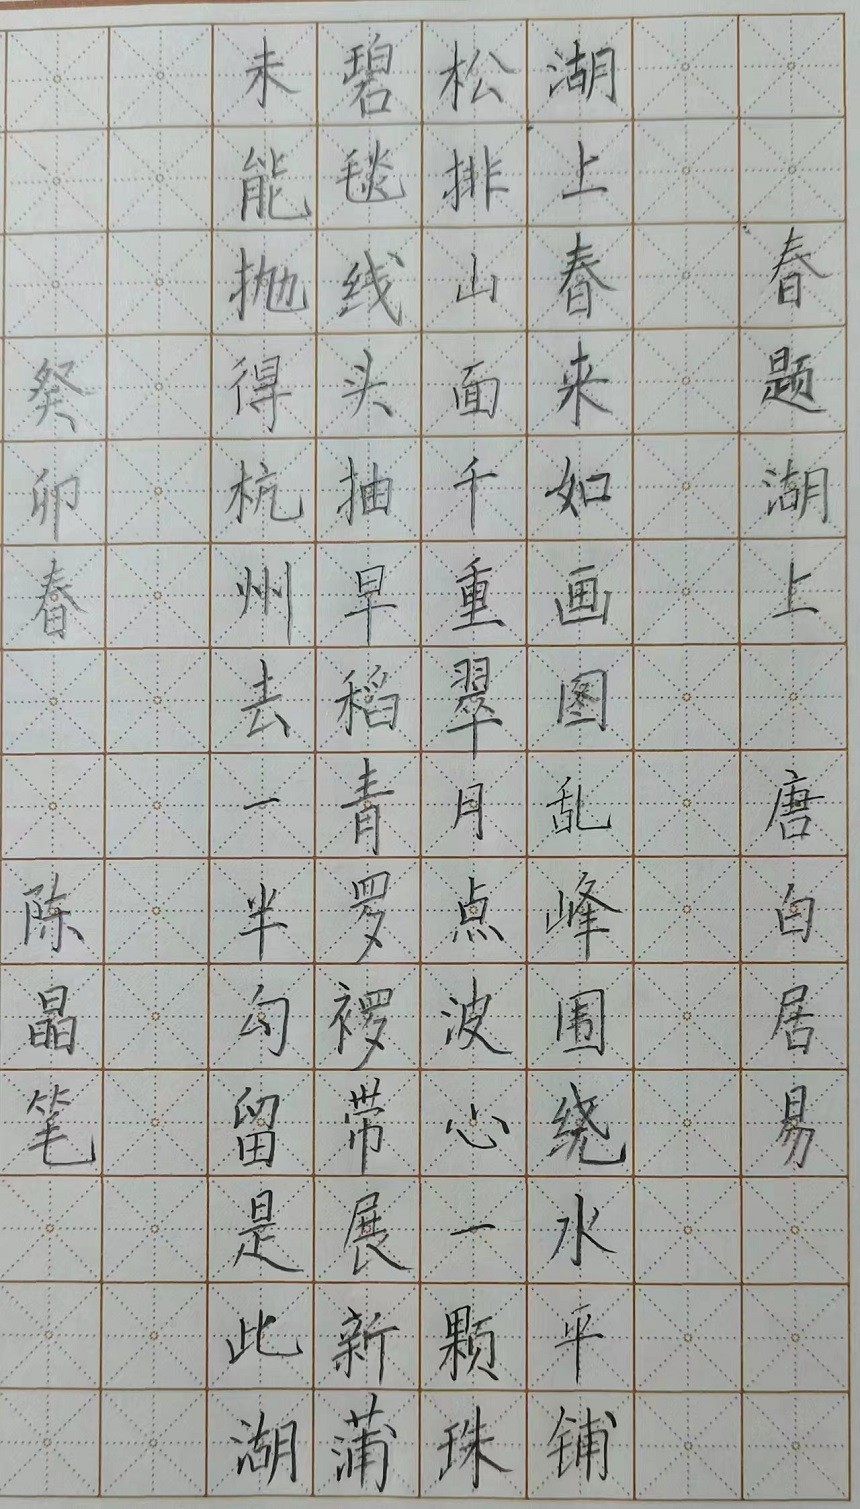 春题湖上 唐白居易
湖上春来如画图乱峰围绕水平铺
松排山面千重翠月点波心一颗珠
碧毯线头抽早稻青罗裙带展新蒲
未能抛得杭州去一半勾留是此湖
癸卯春 陈晶笔